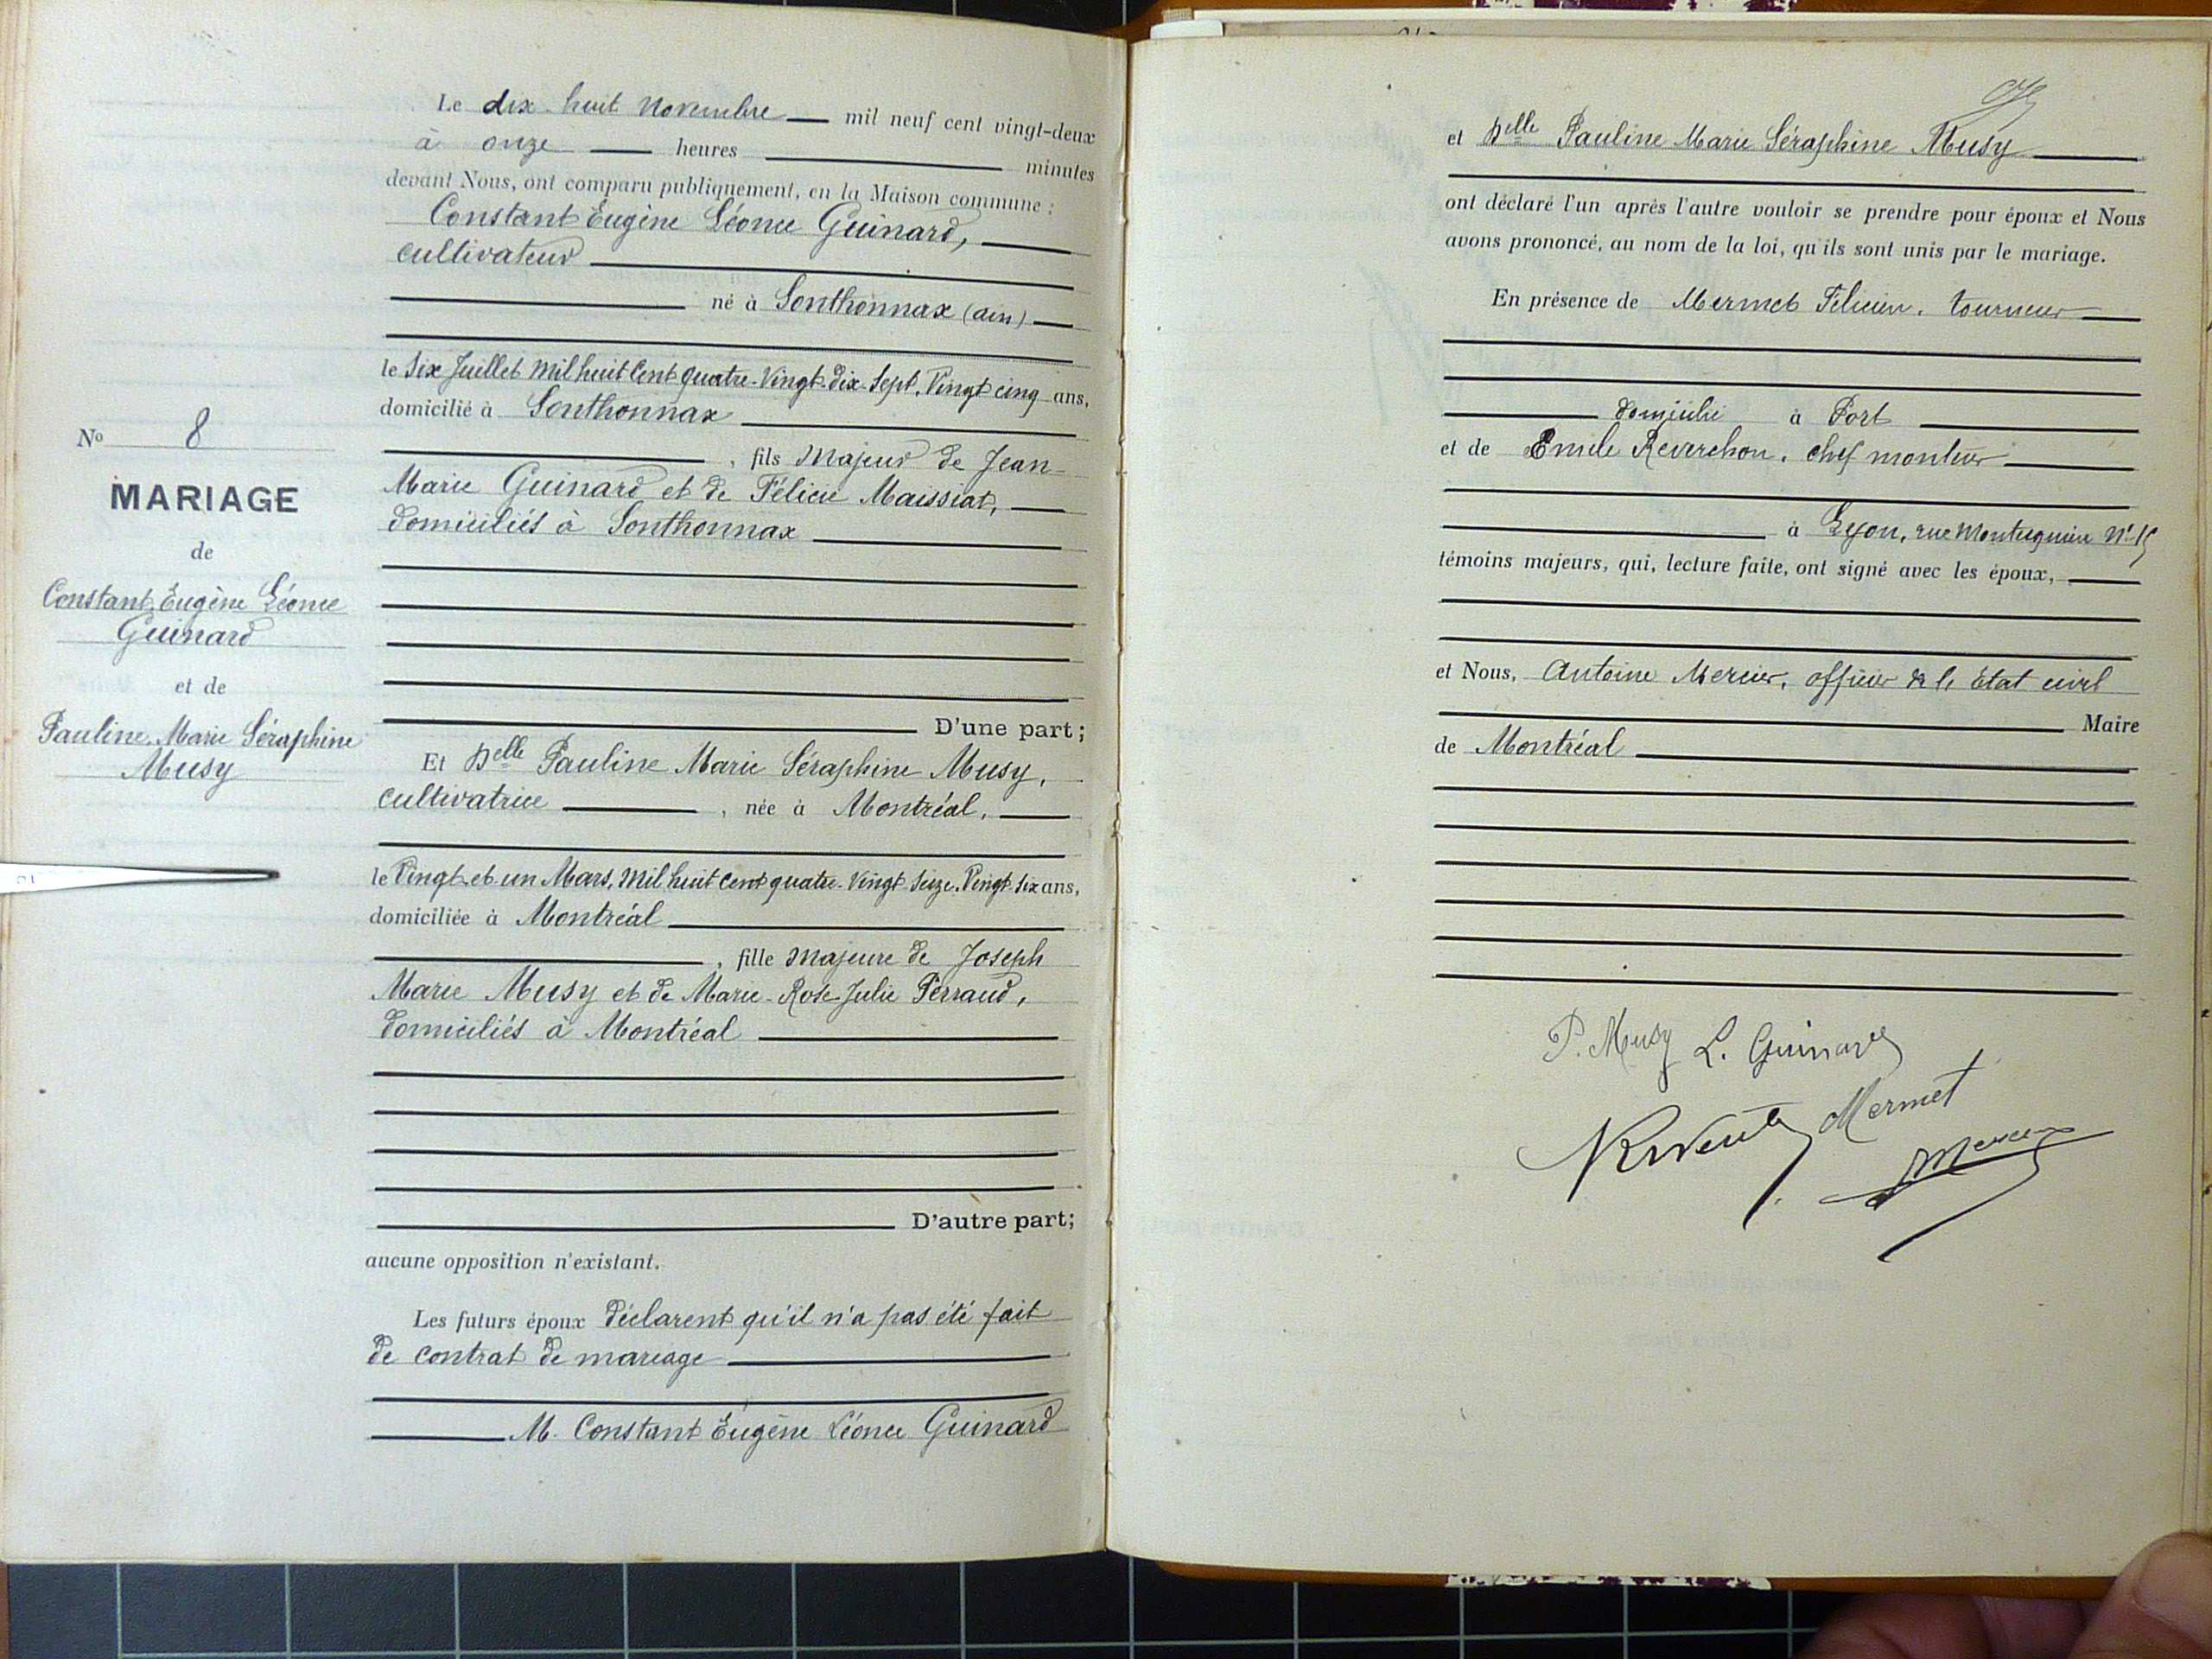 Le dix-huit Novembre mil neuf cent vingt-deux
à onze heures minutes
devant Nous, ont comparu publiquement, en la Maison commune :
Constant Eugène Léonce Guinard,
cultivateur
né à Sonthonnax (ain)
le Six Juillet Mil huit Cent quatre-Vingt-Dix-Sept. Vingt cinq ans,
domicilié à Sonthonnax
, fils Majeur de Jean-
Marie Guinard et de Félicie Maissiat,
domiciliés à Sonthonnax
D'une part ;
Et Delle Pauline Marie Séraphine Musy,
cultivatrice , née à Montréal,
le Vingt et un Mars, Mil huit Cent quatre-Vingt-Seize. Vingt-Six ans,
domiciliée à Montréal
, fille Majeure de Joseph
Marie Musy et de Marie-Rose-Julie Ferraud,
domiciliés à Montréal
D'autre part ;
aucune opposition n'existant.
Les futurs époux déclarent qu'il n'a pas été fait
de contrat de mariage
M. Constant Eugène Léonce Guinard
No 8
MARIAGE
de
Constant Eugène Léonce
Guinard
et de
Pauline Marie Séraphine
Musy
et Delle Pauline Marie Séraphine Musy
ont déclaré l'un après l'autre vouloir se prendre pour époux et Nous
avons prononcé, au nom de la loi, qu'ils sont unis par le mariage.
En présence de Mermet Félicien, tourneur
domicilié à Port
et de Emile Reverchon, chef monteur
à Lyon, rue N° 15
témoins majeurs, qui, lecture faite, ont signé avec les époux,
et Nous, Antoine Mercier, officier de l'Etat civil
Maire
de Montréal
P. Musy L. Guinard
Mermet
Mercier